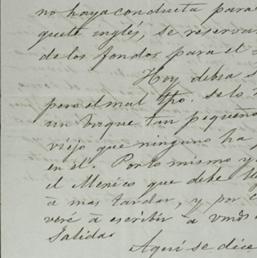 no haya conducta para
quete inglés, se reserva
de los fondos para el
Hoy debia s
pero el mal tpo. se lo
un buque tan pequeño
viejo que ninguno ha p
en el. Por lo mismo y
el Mexico que debe lle
a mas tardar, y por e
veré a escribir a vmds
Salidas
Aqui se dice